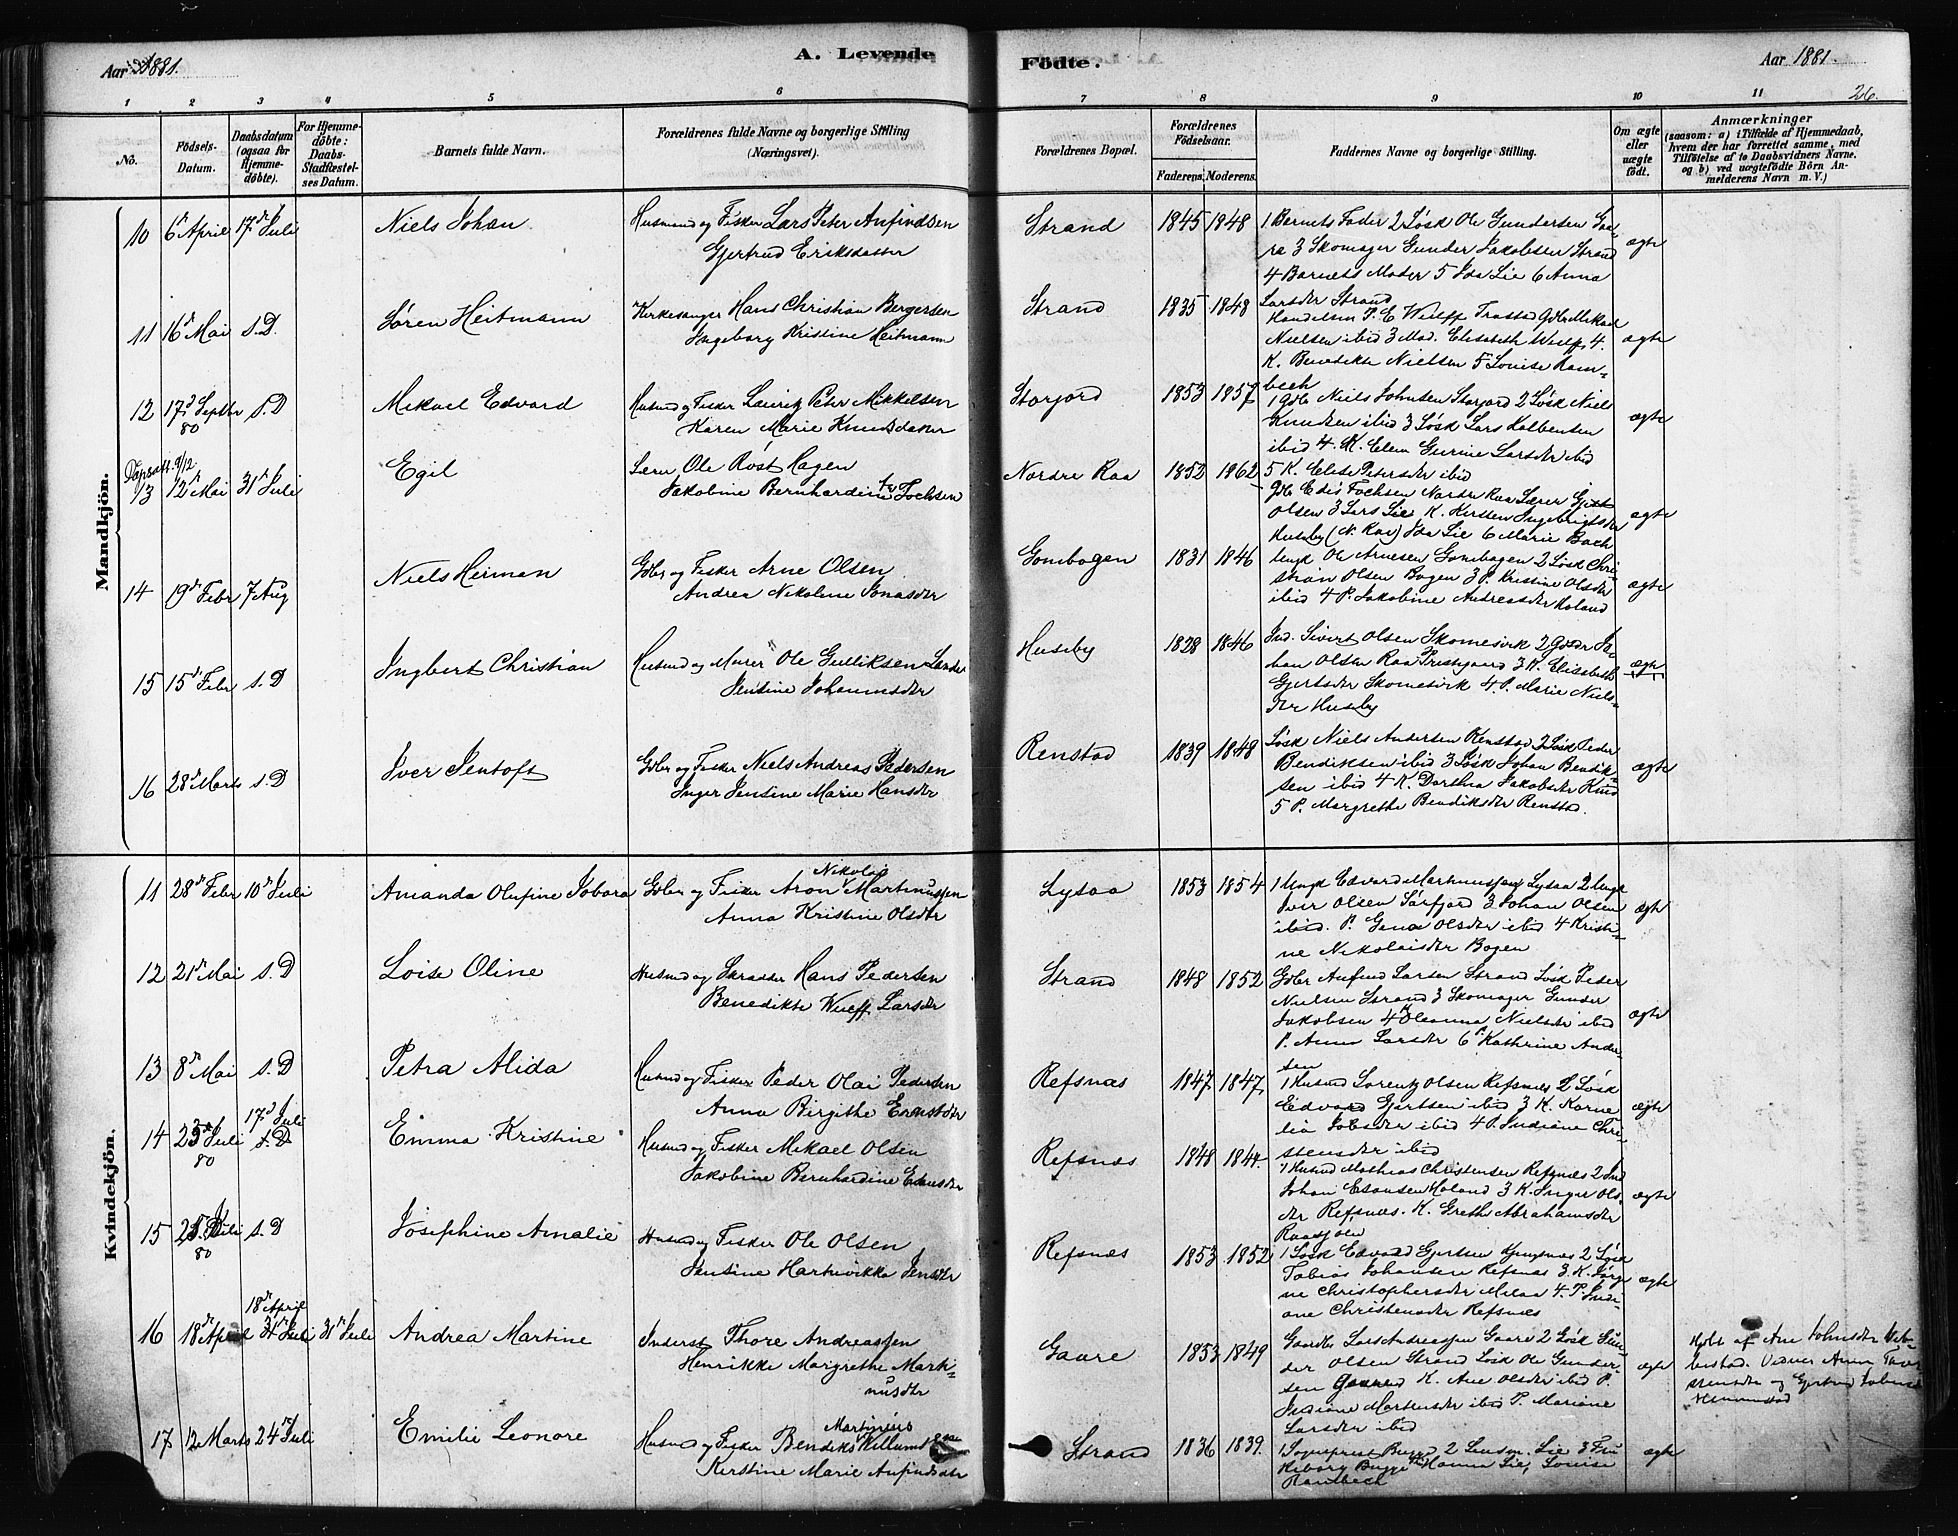 Aar 1881.
A. Levende
Födte.
Aar 1881.
26.
1 2 3 4 5 6 7 8 9 10 11
No.
Födsels-Datum.
Daabsdatum (ogsaa for Hjemme-döbte).
For Hjemme-döbte: Daabs-Stadfæstel-ses Datum.
Barnets fulde Navn.
Forældrenes fulde Navne og borgerlige Stilling (Næringsvei).
Forældrenes Bopæl.
Forældrenes Födselsaar.
Faderens. Moderens.
Faddernes Navne og borgerlige Stilling.
Om ægte eller uægte födt.
Anmærkninger
(saasom: a) i Tilfælde af Hjemmedaab, hvem der har forrettet samme, med Tilföielse af to Daabsvidners Navne, og b) ved uægtefödte Börn An-melderens Navn m. V.)
Mandkjön.
10 6te April 17de Juli Niels Johan Husmand og Fisker Lars Peter Anfindsen
Gjertrud Eriksdatter
Strand 1845 1848 1 Barnets Fader 2 Løsk Ole Gundersen Gaa-
re 3 Skomager Gunder Jakobsen Strand
4 Barnets Moder 5 Ida Lie 6 Anna
Larsdtr Strand
ægte
11 16de Mai s.D. Søren Heitmann Kirkesanger Hans Christian Bergersen
Ingeborg Kristine Heitmann
Strand 1835 1848 Handelsm P. E. Wulff Gdbr Mikael
Nielsen ibid 3 Mad. Elisabeth Wulff 4.
K. Benedikte Nielsen 5 Louise Ram-
bech
ægte
12 17de Septbr 80 s.D Mikael Edvard Husmd og Fisker Lauritz Peter Mikkelsen
Karen Marie Knudsdatter
Storjord 1853 1857 1 Gdbr Niels Johnsen Storjord 2 Løsk Niels
Knudsen ibid 3 Løsk Lars
ibid 4. K. Elen Gurine Larsdtr ibid
5 K. Elise Petersdtr ibid
ægte
13 12te Mai 31te Juli Egil Læsn Ole Röst Hagen
Jakobine Bernhardine Fochsen
Nordre Raa 1852 1862 Gdb Fochsen Nordre Raa Lærer
Olsen 3 Lars Lie K. Kirsten Ingebrigtsdtr
Husby (N. Raa) Ida Lie 6 Marie Bach
ægte
14 19de Febr 7 Aug Niels Herman Gdbr og Fisker Arne Olsen
Andrea Nikoline Jonasdtr
Gombogen 1831 1846 Ungk Ole Arnesen Gombogen 2 Løsk Chri-
stian Olsen Bogen 3 P. Kristine Olsdtr
ibid 4 P. Jakobine Andreasdtr Holand
ægte
15 15de Febr s.D Ingbert Christian Husmd og Murer Ole Gulliksen
Jensine Johannsdtr
Husby 1828 1846 Ind. Sivert Olsen Skomesvik 2 Gdbr Jo-
han Olsen Raa Prestgaard 3 K. Elisabeth
Gjertsdtr Skomesvik 4 P. Marie Niels-
dtr Husby
ægte
16 28de Marts s.D Iver Jentoft Gdbr og Fisker Niels Andreas Pedersen
Inger Jensine Marie Hansdtr
Renstad 1839 1848 Løsk Niels Andersen Renstad 2 Løsk Peder
Bendiksen ibid 3 Løsk Johan Bendik-
sen ibid 4 K. Dorthea Jakobsdtr
5 P. Margrethe Bendiksdtr Renstad.
ægte
Kvindekjön.
11 28de Febr 10de Juli Amanda Olufine Gdbr og Fisker Aron Nikolai Martinussen
Anna Kristine Olsdtr
Lysaa 1853 1854 1 Ungk Edvard Martinussen Lysaa 2 Ungk
Iver Olsen Sørfjord 3 Johan Olsen
ibid. P. Olsdtr ibid 4 Kristi-
ne Nikolaisdtr Bogen
ægte
12 21de Mai s.D Loise Oline Husmd og Skrædder Hans Pedersen
Benedikte Wulff Larsdtr
Strand 1848 1852 Gdbr Anfind Larsen Strand Løsk Peder
Nielsen Strand 3 Skomager Gunder
Jakobsen 4 K Oleanna Nielsdtr ibid
P. Anna Larsdtr 6 P. Kathrine Ander-
sen
ægte
13 8de Mai s.D Petra Alida Husmd og Fisker Peder Olai Pedersen
Anna Birgithe Ernstdtr
Refsnæs 1847 1847 1 Husmd Lorentz Olsen Refsnæs 2 Løsk
Edvard Gjertsen ibid 3 K. Karne-
lia Jobsdtr ibid 4 P. Indiane Chri-
stensdtr ibid
ægte
14 23de Juli 80 17de Juli s.D. Emma Kristine Husmd og Fisker Mikael Olsen
Jakobine Bernhardine
Refsnæs 1848 1844. 1 Husmd Mathias Christensen Refsnæs 2 Ind
Johan Holand 3 K. Inger Ols-
dtr Refsnæs. K. Grethe Abrahamsdtr
ægte
15 25de Juli 80 s.D Josephine Amalie Husmd og Fisker Ole Olsen
Jensine Hartvikka Jensdtr
Refsnæs 1853 1852 1 Løsk Edvard Gjertsen 2 Løsk
Tobias Johansen Refsnæs 3. K. Jørgi-
ne Christophersdtr 4. P. Indi-
ane Christensdtr Refsnæs
ægte
16 18de April 18de April 31te Juli 31te Juli Andrea Martine Inderst Thore Andreassen
Henrikke Margrethe Marti-
nusdtr
Gaare 1853 1849 Gaardbr Lars Andreassen Gaare 2 Løsk Gun-
der Olsen Strand Løsk Ole Gunder-
sen Gaare K. Ane Olsdtr ibid P.
Indiane Mortensdtr ibid P. Mariane
Larsdtr ibid
ægte
Hjdbt af Ane Johnsdtr
Vidner Anna
og Gjertrud
17 12 Marts 24de Juli Emilie Leonore Husmd og Fisker Bendiks Martinius Willumsen
Kerstine Marie Anfindsdtr
Strand 1836 1839. 1 Sogneprest Bugge 2 Lensm. Lie 3 Fru
Bugge Hanna Lie, Lovise
Rambech
ægte